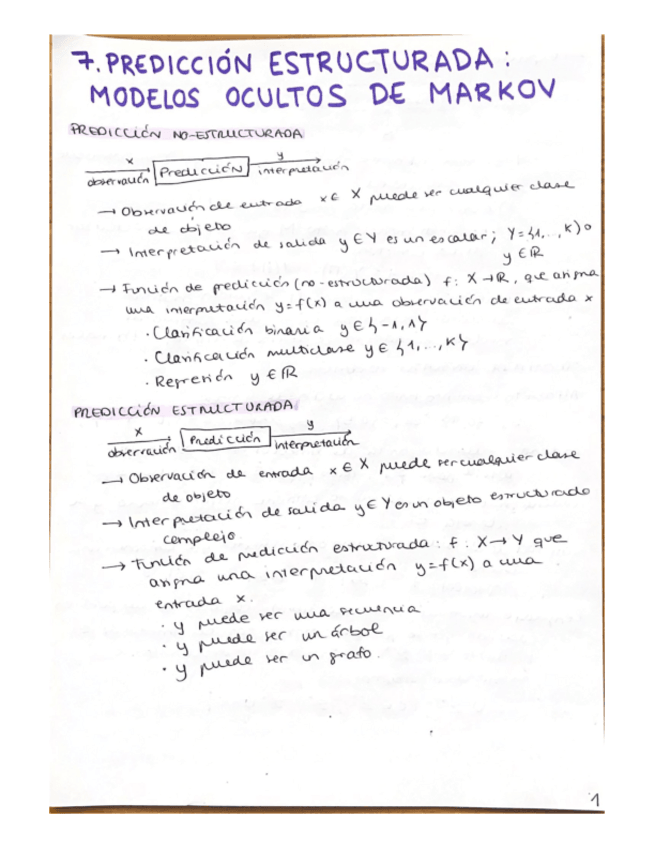 7. PREDICCIÓN ESTRUCTURADA:
MODELOS OCULTOS DE MARKOV
PREDICCIÓN NO-ESTRUCTURADA
x
observación
Predicción
y
interpretación
→ Observación de entrada x ∈ X puede ser cualquier clase
de objeto
→ Interpretación de salida y ∈ Y es un escalar; Y = {1,..., K} o
y ∈ ℝ
→ Función de predicción (no-estructurada) f: X → ℝ, que asigna
una interpretación y = f(x) a una observación de entrada x
· Clasificación binaria y ∈ {-1, 1}
· Clasificación multiclase y ∈ {1,..., K}
· Regresión y ∈ ℝ
PREDICCIÓN ESTRUCTURADA
x
observación
Predicción
y
interpretación
→ Observación de entrada x ∈ X puede ser cualquier clase
de objeto
→ Interpretación de salida y ∈ Y es un objeto estructurado
complejo.
→ Función de predicción estructurada: f: X → Y que
asigna una interpretación y = f(x) a una
entrada x.
· y puede ser una secuencia
· y puede ser un árbol
· y puede ser un grafo.
1